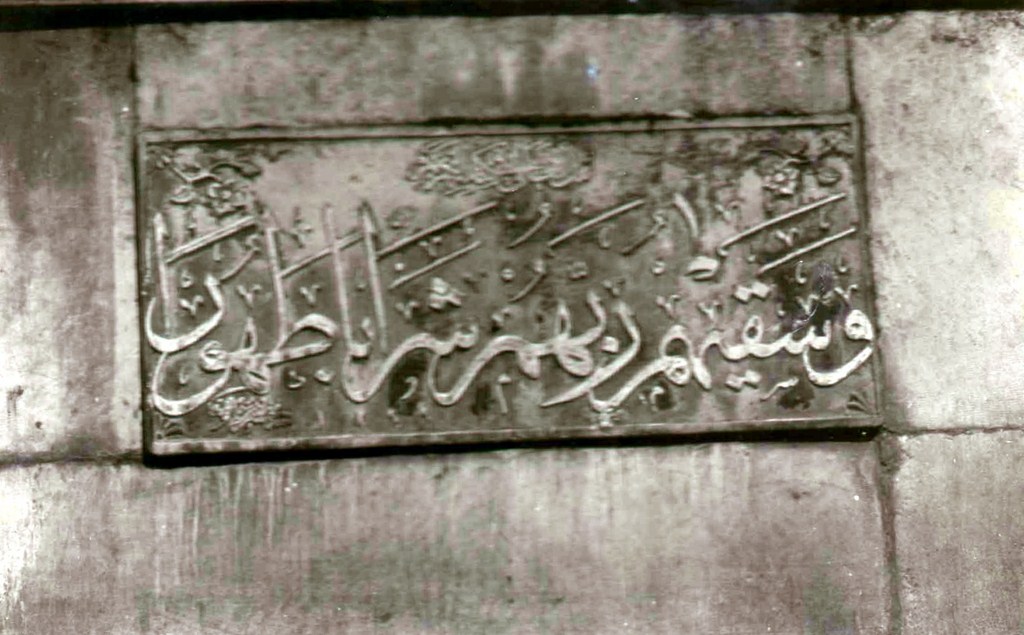 وسقيهم ربهم شرابا طهورا